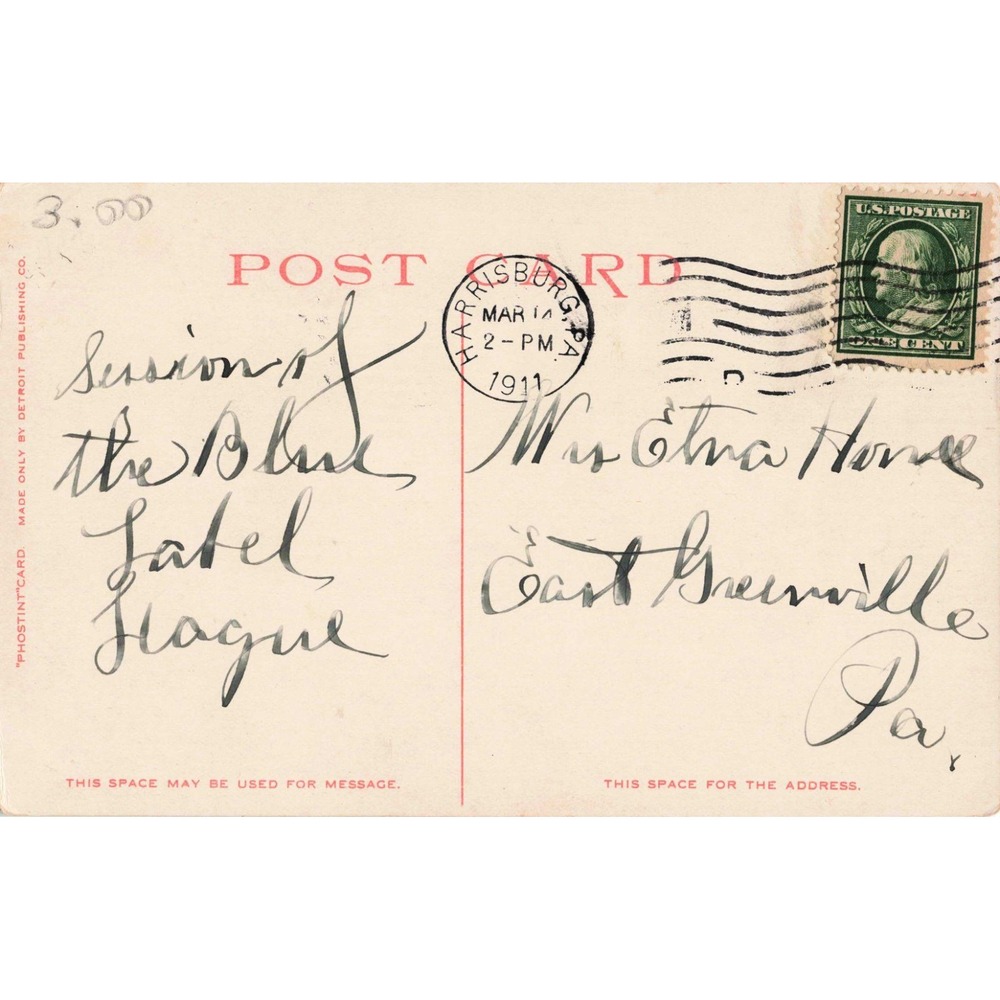 3.00
POST CARD
HARRISBURG, PA
MAR 14
2-PM
1911
U.S. POSTAGE
ONE CENT
"PHOSTINT" CARD. MADE ONLY BY DETROIT PUBLISHING CO.
Session of
the Blue
Label
League
Etna
East Greenville
Pa.
THIS SPACE MAY BE USED FOR MESSAGE.
THIS SPACE FOR THE ADDRESS.